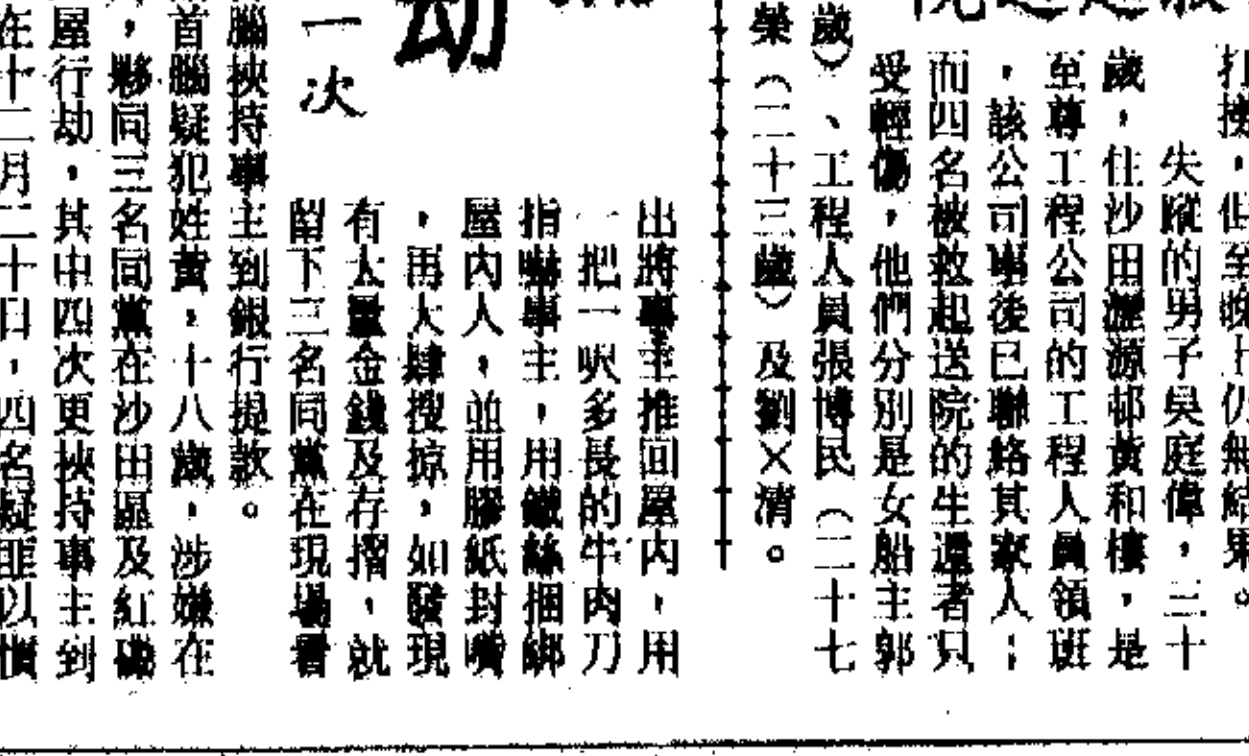 打撈,但至晚上仍無結果。
失蹤的男子吳庭偉,三十
歲,住沙田瀝源邨黃和樓,是
至尊工程公司的工程人員領班
,該公司事後已聯絡其家人;
而四名被救起送院的生還者只
受輕傷,他們分別是女船主郭
歲)、工程人員張博民(二十七
榮(二十三歲)及劉×清。
劫
出將事主推回屋內,用
一把一呎多長的牛肉刀
指嚇事主,用鐵絲捆綁
屋內人,並用膠紙封嘴
,再大肆搜掠,如發現
有大量金錢及存摺,就
留下三名同黨在現場看
一次
腦挾持事主到銀行提款。
首腦疑犯姓黃,十八歲,涉嫌在
,夥同三名同黨在沙田區及紅磡
屋行劫,其中四次更挾持事主到
在十二月二十日,四名疑匪以慣